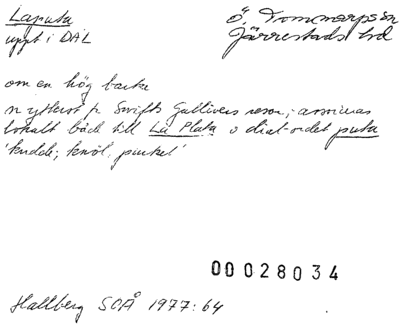 Laputa
Ö. Tommarps sn
uppt i DAL
Järrestads hd
om en hög backe
n ytterst fr Swifts Gullivers resor; associeras
lokalt både till La Plata o dial-ordet puta
'kudde; knöl, puckel'
00028034
Hallberg SOÅ 1977:64